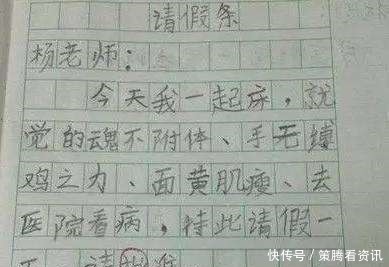 请假条
杨老师：
今天我一起床，就
觉的魂不附体、手无缚
鸡之力、面黄肌瘦、去
医院看病，特此请假一
天 请批准
快传号／策腾看资讯